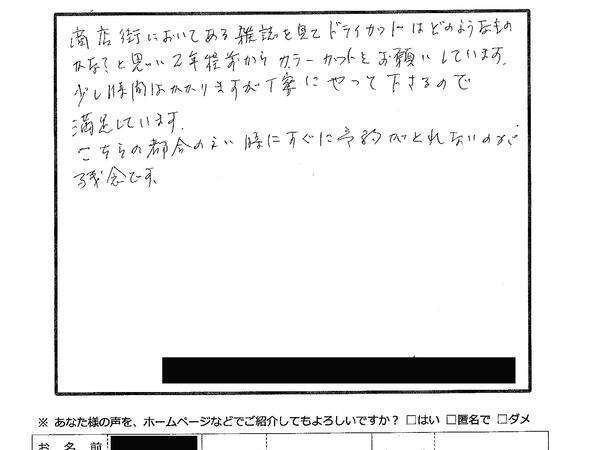 商店街においてある雑誌を見てドライカットはどのようなもの
かな?と思い2年程前からカラーカットをお願いしています。
少し時間はかかりますが丁寧にやって下さるので
満足しています。
こちらの都合のえい時にすぐに予約がとれないのが
残念です。
※ あなた様の声を、ホームページなどでご紹介してもよろしいですか? □はい □匿名で □ダメ
お 名 前